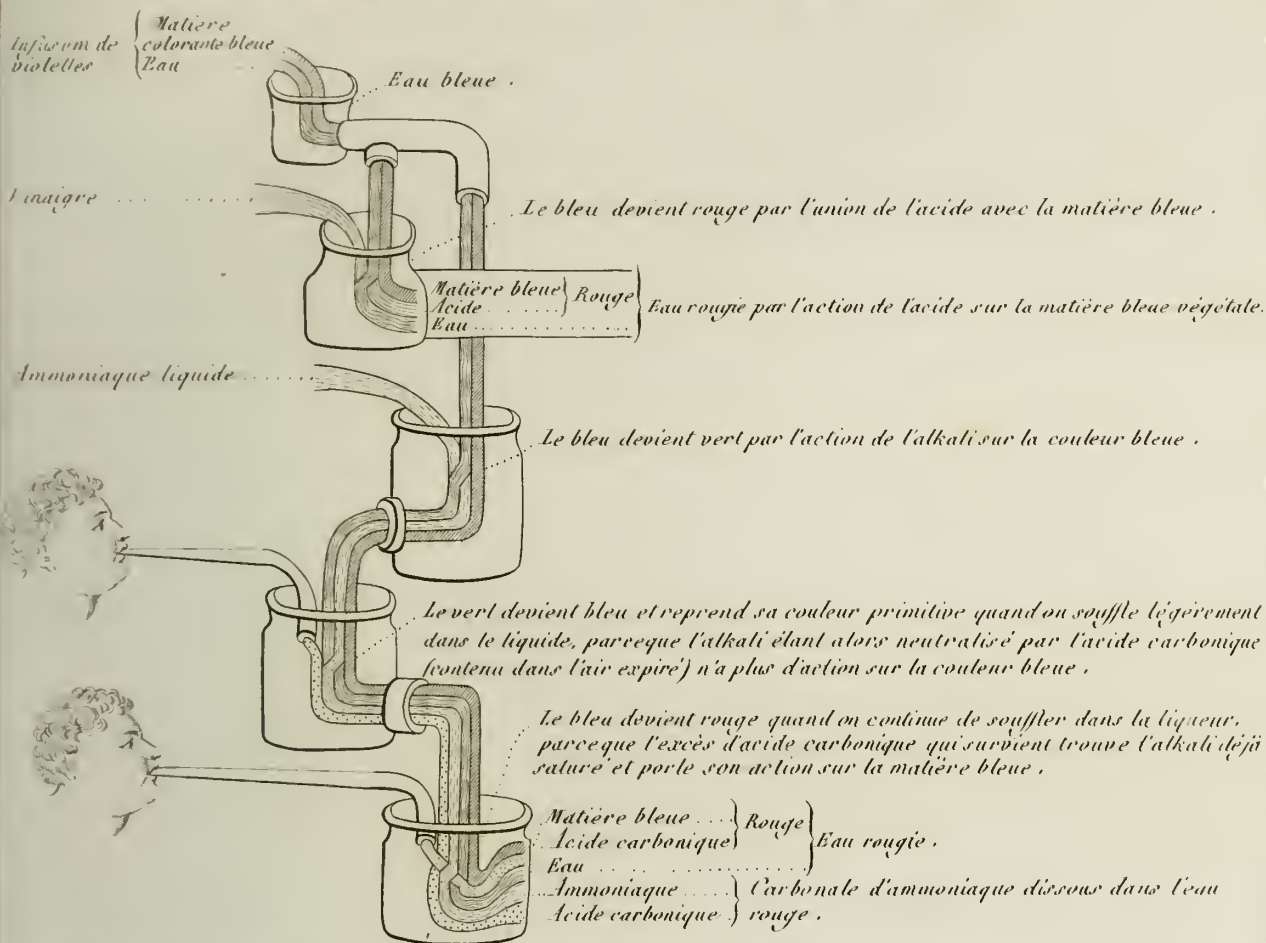 Infusum de { Matière
violettes colorante bleue
Eau
Eau bleue .
Vinaigre .... ......
Le bleu devient rouge par l'union de l'acide avec la matière bleue .
Matière bleue } Rouge
Acide ......
Eau ..............
Eau rougie par l'action de l'acide sur la matière bleue végétale.
Ammoniaque liquide .......
Le bleu devient vert par l'action de l'alkali sur la couleur bleue .
Le vert devient bleu et reprend sa couleur primitive quand on souffle légèrement
dans le liquide, parceque l'alkali étant alors neutralisé par l'acide carbonique
(contenu dans l'air expiré) n'a plus d'action sur la couleur bleue .
Le bleu devient rouge quand on continue de souffler dans la liqueur,
parceque l'excès d'acide carbonique qui survient trouve l'alkali déjà
saturé et porte son action sur la matière bleue .
Matière bleue .... } Rouge
Acide carbonique
Eau ..............
Eau rougie .
Ammoniaque ..... } Carbonate d'ammoniaque dissous dans l'eau
Acide carbonique . rouge .